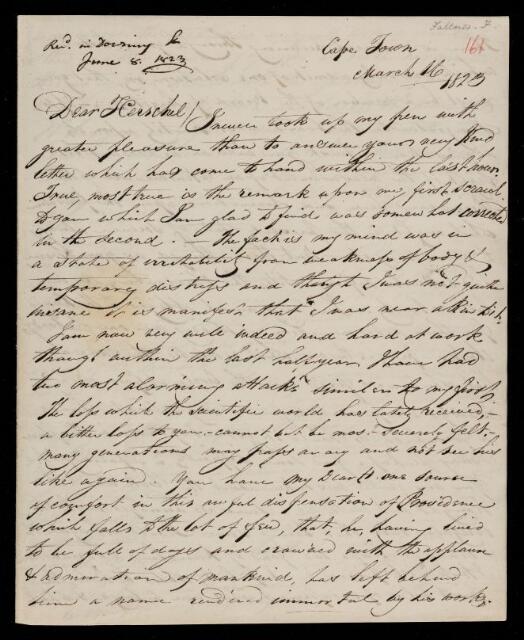 Fallows. F.
161
Recd. in Downing St
June 8. 1823
Cape Town
March 16
1823
Dear Herschel / I never took up my pen with
greater pleasure than to answer your very kind
letter which has come to hand within the last hour.
True, most true is the remark upon my first scrawl
to you which I am glad to find was somewhat corrected
in the second. — The fact is my mind was in
a state of irritability from weakness of body &
temporary distress and though I was not quite
insane it is manifest that I was near akin to it.
I am now very well indeed and hard at work
though within the last half year I have had
two most alarming attacks similar to my first
The loss which the scientific world has lately received,
a bitter loss to you — cannot but be most severely felt —
many generations may pass away and not see his
like again. You have my Dear H one source
of comfort in this awful dispensation of Providence
which falls to the lot of few, that, he, having lived
to be full of days and crowned with the applause
& admiration of mankind, has left behind
him a name rendered immortal by his works.